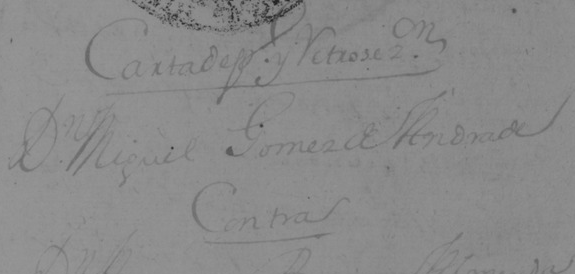 Carta de pp. y Retrosezon.
Dn Miguel Gomez de Andrade
Contra
Dn